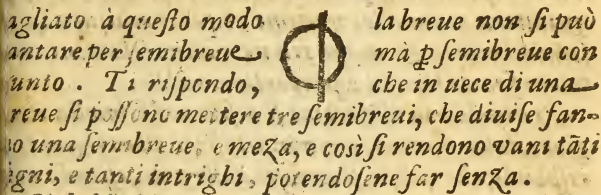 agliato à queſto modo la breue non ſi può
antare per ſemibreue mà ꝑ ſemibreue con
unto . Ti riſpondo, che in uece di una
reue ſi poſſono mettere tre ſemibreui, che diuiſe fan-
o una ſemibreue, e meza, e così ſi rendono vani tāti
igni, e tanti intrighi, potendoſene far ſenza.